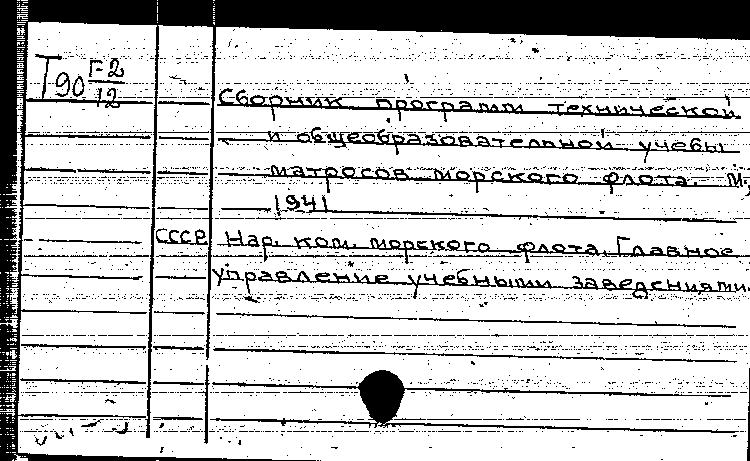 Т90 Г-2/12
Сборник программ технической
и общеобразовательной учебы
матросов морского флота. М.,
1941
СССР Нар. ком. морского флота. Главное
управление учебными заведениями.